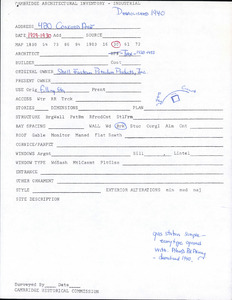 CAMBRIDGE ARCHITECTURAL INVENTORY - INDUSTRIAL
Demolished 1940
ADDRESS 480 Concord Ave
DATE 1929-1930 Ads SOURCE
MAP 1830 54 73 86 94 1903 16 30 41 71
ARCHITECT
BUILDER Cost
ORIGINAL OWNER Shell Eastern Petroleum Products, Inc.
PRESENT OWNER
USE Orig Filling Sta.
ACCESS Wtr RR Trck
STORIES DIMENSIONS PLAN
STRUCTURE BrgWall PstBm RfrcdCnt StlFrm
BAY SPACING WALL Wd Brk Stuc Corrgl Alm Cnt
ROOF Gable Monitor Mansd Flat Sawth
CORNICE/PARPET
WINDOWS Argmt Sill Lintel
WINDOW TYPE WdSash MtlCasmt FixGlas
ENTRANCE
OTHER ORNAMENT
STYLE EXTERIOR ALTERATIONS min mod maj
SITE DESCRIPTION
gas station
Surveyed By Date
CAMBRIDGE HISTORICAL COMMISSION